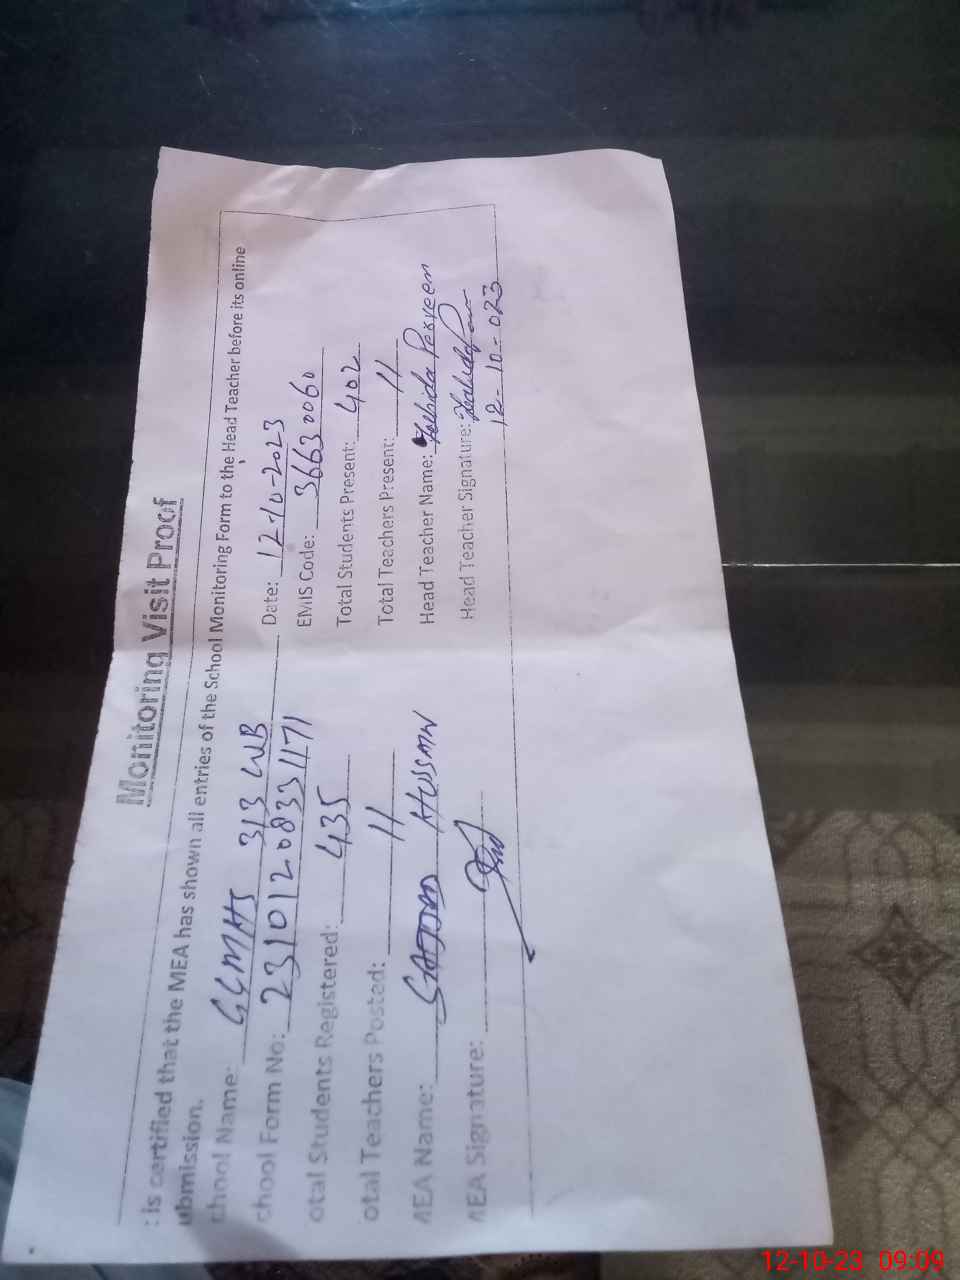 Monitoring Visit Proof
: is certified that the MEA has shown all entries of the School Monitoring Form to the Head Teacher before its online
ubmission.
chool Name: GGMHS 313 WB Date: 12-10-2023
chool Form No: 23101208331171 EMIS Code: 36630060
otal Students Registered: 435 Total Students Present: 402
otal Teachers Posted: 11 Total Teachers Present: 11
MEA Name: HUSSAIN Head Teacher Name: Zahida Perveen
MEA Signature: Head Teacher Signature:
12-10-023
12-10-23 09:09